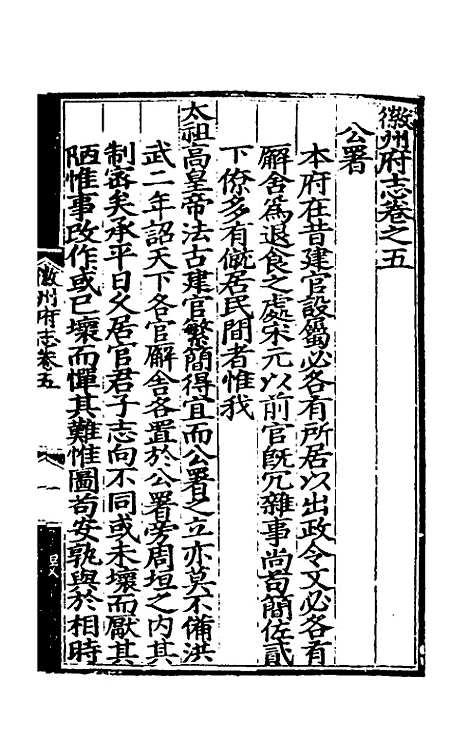 徽州府志卷之五
公署
本府在昔建官設屬必各有所居以出政令又必各有
廨舍爲退食之處宋元以前官旣冗雜事尚苟簡佐貳
下僚多有僦居民間者惟我
太祖高皇帝法古建官繁簡得宜而公署之立亦莫不備洪
武二年詔天下各官廨舍各置於公署旁周垣之内其
制密矣承平日久居官君子志向不同或未壞而厭其
陋惟事改作或已壞而憚其難惟圖苟安孰與於相時
徽州府志卷五
一